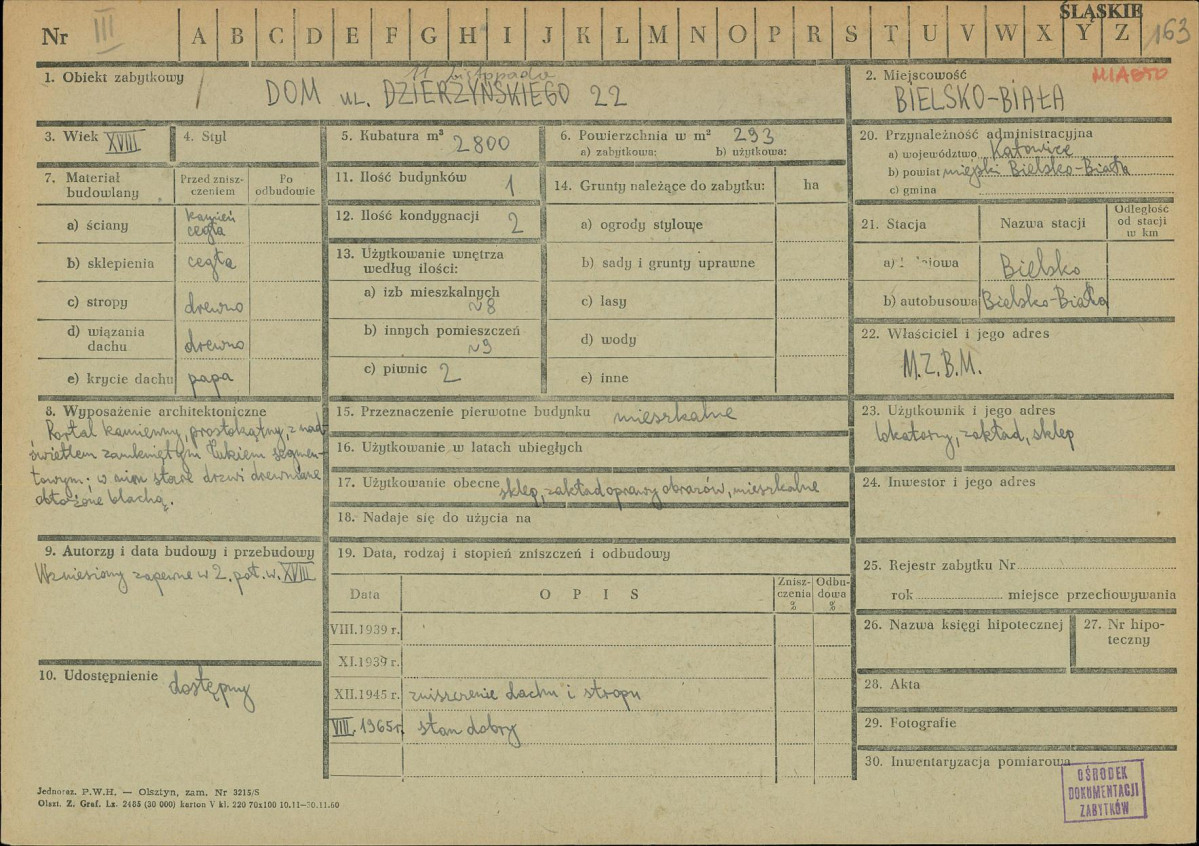 ŚLĄSKIE
Nr III A B C D E F G H I J K L M N O P R S T U V W X Y Z 163
1. Obiekt zabytkowy
11 Listopada
DOM UL. DZIERŻYŃSKIEGO 22
2. Miejscowość MIASTO
BIELSKO-BIAŁA
3. Wiek XVIII
4. Styl
5. Kubatura m³ 2800
6. Powierzchnia w m² 293
a) zabytkowa: b) użytkowa:
20. Przynależność administracyjna
a) województwo Katowice
b) powiat miejski Bielsko-Biała
c) gmina
7. Materiał budowlany
Przed zniszczeniem
Po odbudowie
a) ściany kamień cegła
b) sklepienia cegła
c) stropy drewno
d) wiązania dachu drewno
e) krycie dachu papa
11. Ilość budynków 1
12. Ilość kondygnacji 2
13. Użytkowanie wnętrza
według ilości:
a) izb mieszkalnych ~8
b) innych pomieszczeń ~9
c) piwnic 2
14. Grunty należące do zabytku: ha
a) ogrody stylowe
b) sady i grunty uprawne
c) lasy
d) wody
e) inne
21. Stacja
Nazwa stacji
Odległość
od stacji
w km
Bielsko
b) autobusowa Bielsko-Biała
22. Właściciel i jego adres
M.Z.B.M.
8. Wyposażenie architektoniczne
Portal kamienny, prostokątny, z nad-
świetlem zamkniętym łukiem segmen-
towym; w nim stare drzwi drewniane
obłożone blachą.
15. Przeznaczenie pierwotne budynku mieszkalne
16. Użytkowanie w latach ubiegłych
17. Użytkowanie obecne sklep, zakład oprawy obrazów, mieszkalne
18. Nadaje się do użycia na
23. Użytkownik i jego adres
lokatorzy, zakład, sklep
24. Inwestor i jego adres
9. Autorzy i data budowy i przebudowy
Wzniesiony zapewne w 2. poł. w. XVIII
10. Udostępnienie dostępny
19. Data, rodzaj i stopień zniszczeń i odbudowy
Data
O P I S
Znisz-
czenia
%
Odbu-
dowa
%
VIII.1939 r.
XI.1939 r.
XII.1945 r. zniszczenie dachu i stropu
VIII. 1965 r. stan dobry
25. Rejestr zabytku Nr
rok miejsce przechowywania
26. Nazwa księgi hipotecznej
27. Nr hipo-
teczny
28. Akta
29. Fotografie
30. Inwentaryzacja pomiarowa
OŚRODEK
DOKUMENTACJI
ZABYTKÓW
Jednoraz. P.W.H. — Olsztyn, zam. Nr 3215/S
Olszt. Z. Graf. Lz. 2485 (30 000) karton V kl. 220 70x100 10.11—30.11.60